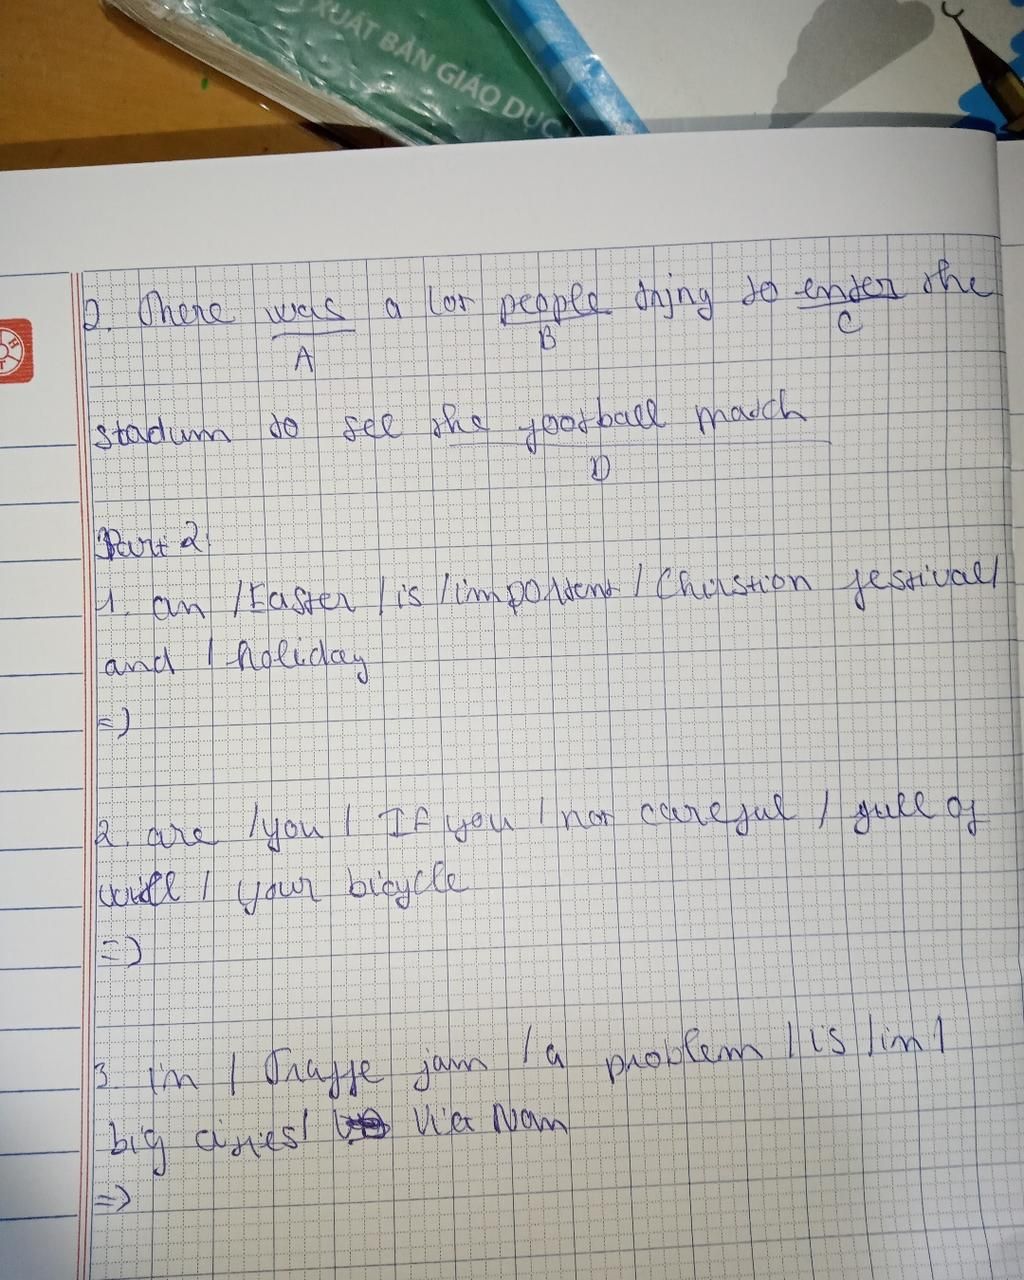 XUẤT BẢN GIÁO DỤC
2. There was a lot people trying to enter the
A B C
stadum to see the football match
D
Part 2
1. an / Easter / is / importent / Christion festival /
and / holiday
=>
2. are / you / If you / not careful / full of
will / your bicycle
=>
3. in / Traffe jam / a problem / is / in /
big cities / Viet Nam
=>